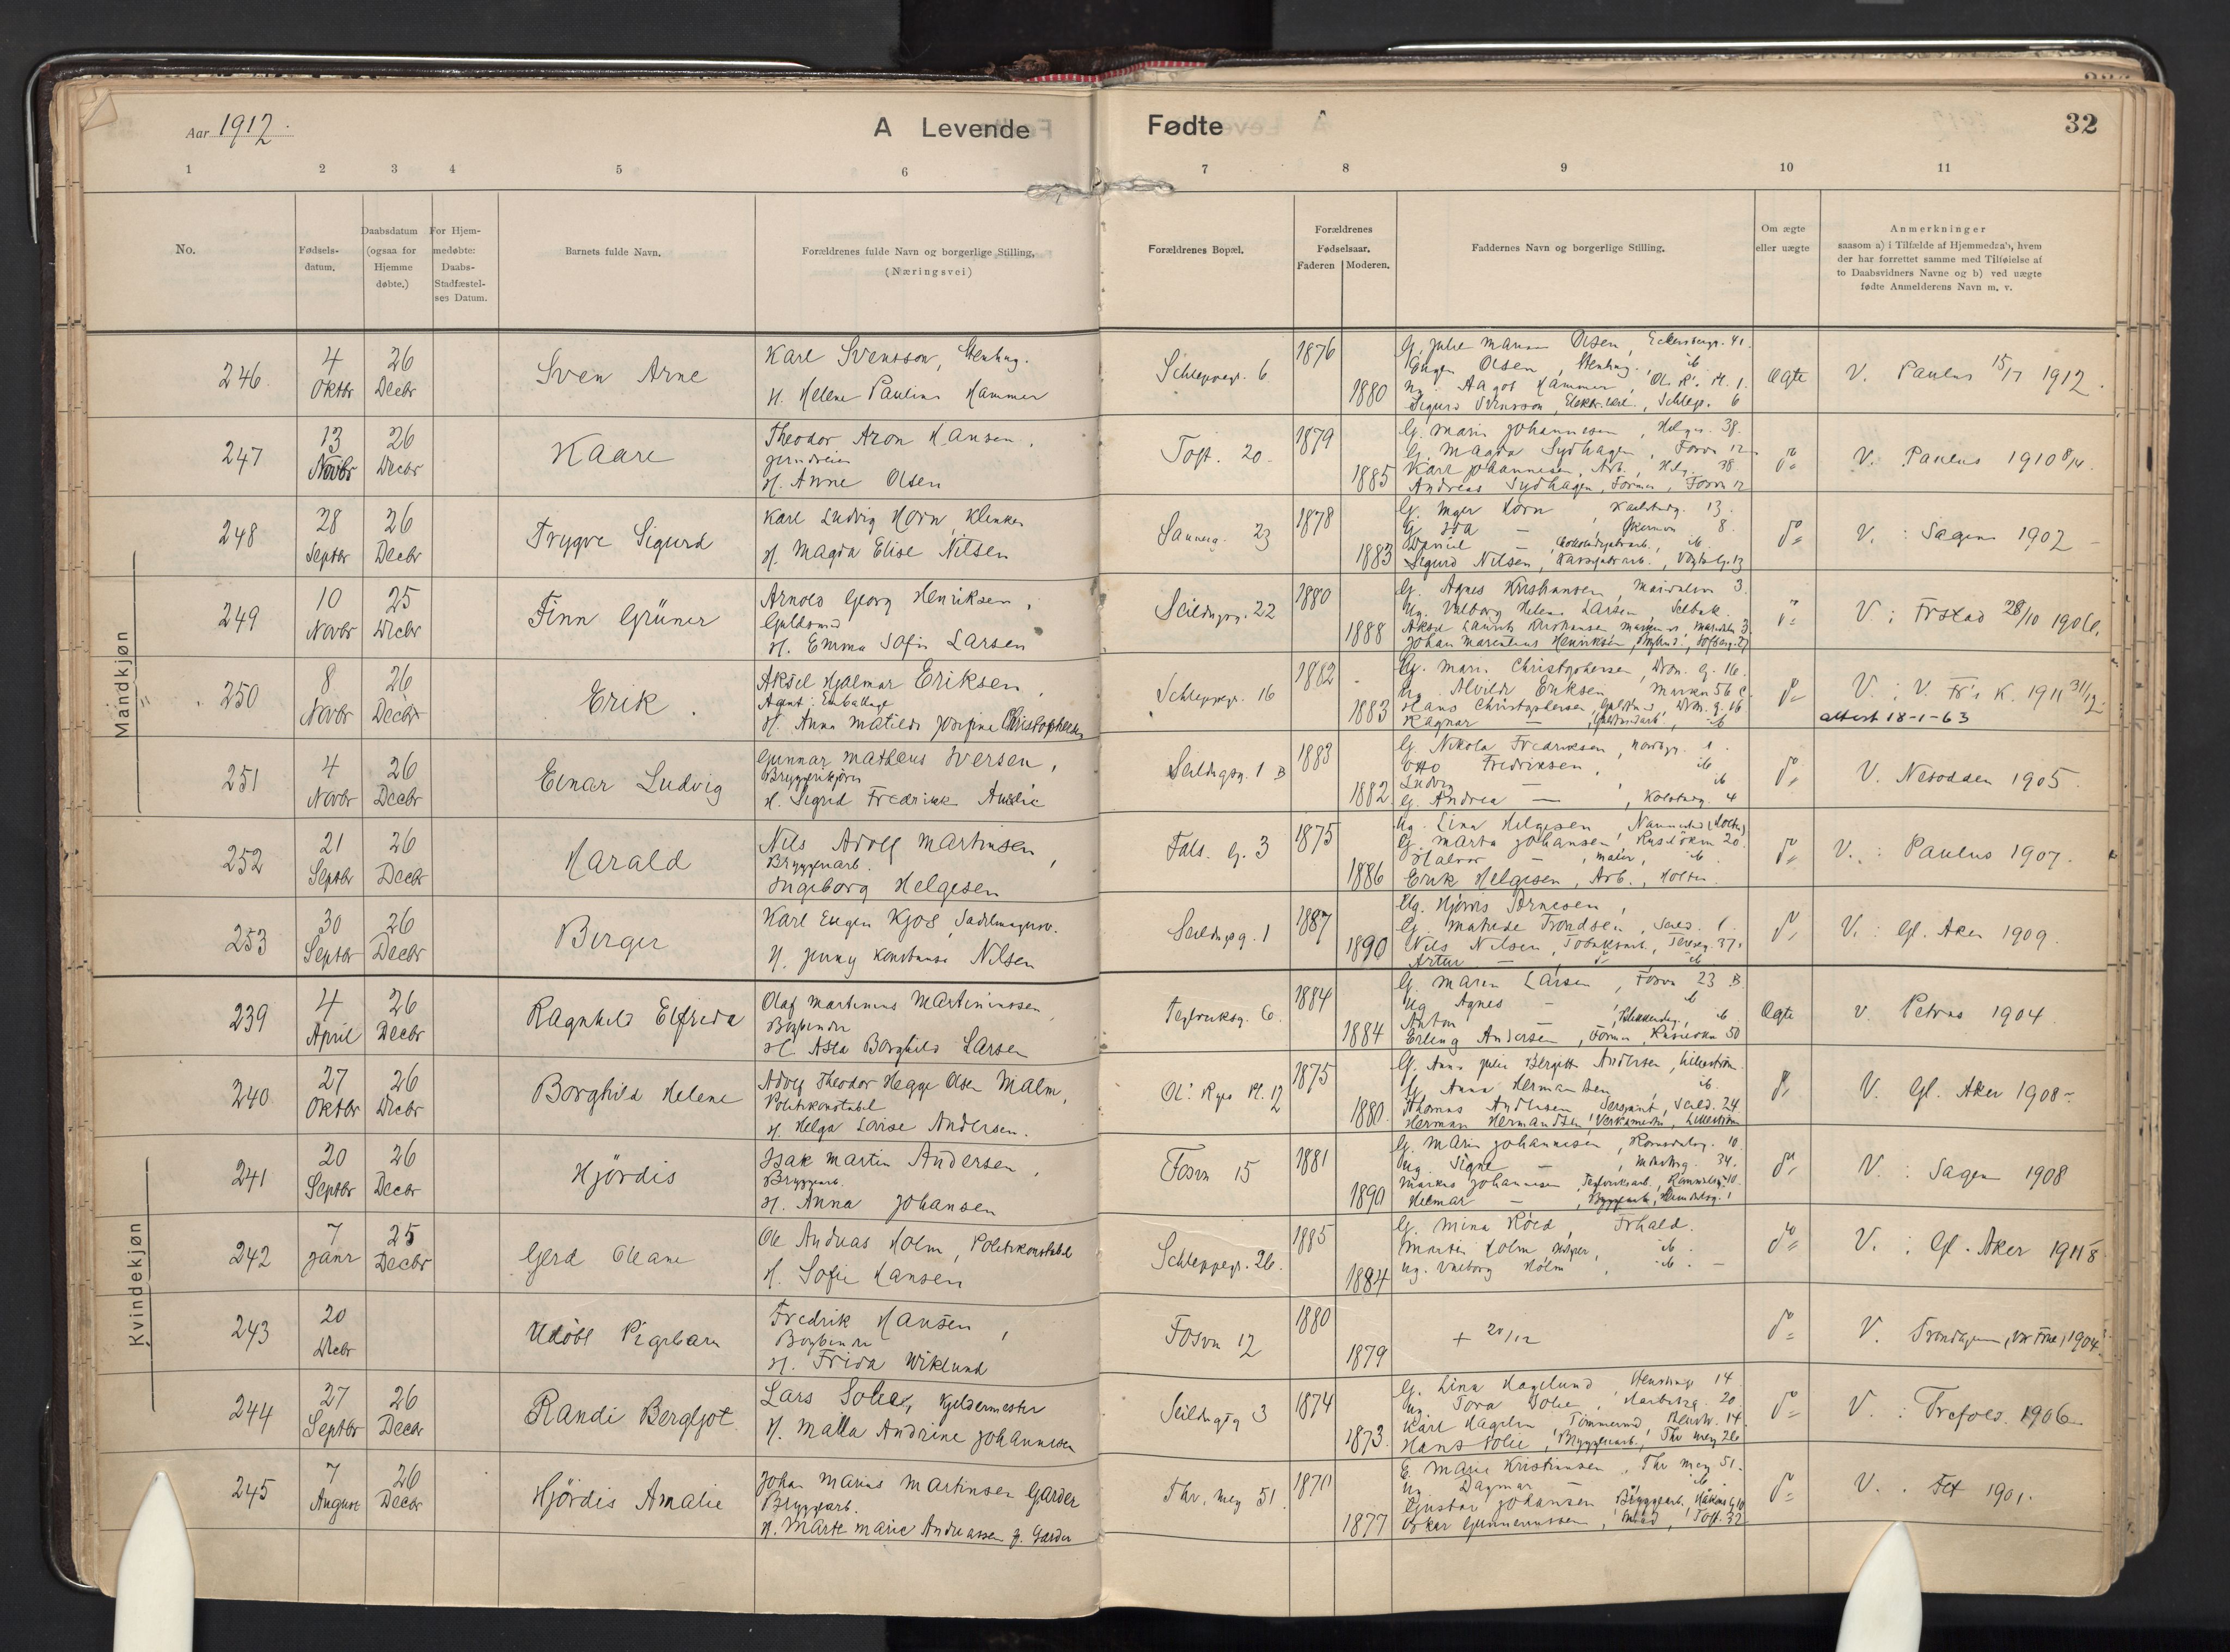 Aar 1912.
A Levende Fødte
32
1 2 3 4 5 6 7 8 9 10 11
No.
Fødsels-
datum.
Daabsdatum
(ogsaa for
Hjemme
døbte.)
For Hjem-
medøbte:
Daabs-
Stadfæstel-
ses Datum.
Barnets fulde Navn.
Forældrenes fulde Navn og borgerlige Stilling.
(Næringsvei)
Forældrenes Bopæl.
Forældrenes
Fødselsaar.
Faderen Moderen.
Faddernes Navn og borgerlige Stilling.
Om ægte
eller uægte
Anmerkninger
saasom a) i Tilfælde af Hjemmedaab, hvem
der har forrettet samme med Tilføielse af
to Daabsvidners Navne og b) ved uægte
fødte Anmelderens Navn m. v.
Mandkjøn
246 4 Oktbr 26 Decbr
Sven Arne
Karl Svensson,
H. Helene Pauline Hammer
Schleppegr. 6
1876
1880
Olsen, Eckersbergs. 41
Olsen
Aagot Hammer
Sigurd Svensson
Ægte
V. Paulus 15/11 1912.
247 13 Novbr 26 Decbr
Kaare
Theodor Aron Hansen,
H. Anne Olsen
Toft. 20
1879
1885
G. Marie Johannesen, Helg. 38
G. Magda Sydhagen, Fosvn 12
Karl Johannesen, Arb., Helg. 38
Andreas Sydhagen, Former, Fosvn 12
do
V. Paulus 1910 8/4.
248 28 Septbr 26 Decbr
Trygve Sigurd
Karl Ludvig Horn
H. Magda Elise Nilsen
23
1878
1883
G. Inger Horn, 13.
G. Ida — 8.
Daniel —
Sigurd Nilsen
do
V. : Sagen 1902
249 10 Novbr 25 Decbr
Finn Grüner
Arnold Georg Henriksen,
Guldsmed
H. Emma Sofie Larsen
Seildugsg. 22
1880
1888
G. Agnes Kristiansen, Maridalsv 3.
Ug. Valborg Helene Larsen, Selbak.
Aksel Lauritz Kristiansen
Johan Marentius Henriksen
V. : Frstad 28/10 1906.
250 8 Novbr 26 Decbr
Erik
Aksel Hjalmar Eriksen,
Agent i Emballage
H. Anna Matilde Josefine Christophersen
Schleppegr. 16
1882
1883
G. Marie Christophersen
Ug. Alvilde Eriksen, Markv 56 C.
Hans Christophersen
Ragnar —
do
V. : V. Fr's K. 1911 31/12
attest 18-1-63
251 4 Novbr 26 Decbr
Einar Ludvig
Gunnar Matheus Iversen,
Bryggerikjører
H. Sigrid Fredrikke
Seildugsg. 1 B
1883
1882
G. Nikola Fredriksen
Otto Fredriksen, ib
Ludvig — ib
G. Andrea — 4
do
V. Nesodden 1905.
252 21 Septbr 26 Decbr
Harald
Nils Adolf Martinsen,
Bryggeriarb.
Ingeborg Helgesen
Fals. G. 3
1875
1886
Ug. Lina Helgesen, Nannestad (Holter)
G. Marta Johansen, 20.
Halvor — Maler, ib.
Erik Helgesen, Arb., Holter.
do
V. : Paulus 1907.
253 30 Septbr 26 Decbr
Birger
Karl Eugen Kjos, Sadelmagersv.
H. Jenny Konstanse Nilsen
Seildugsg. 1
1887
1890
Ug. Hjørdis Arnesen,
G. Matilde Trondsen, Seild. 1.
Nils Nilsen, Tobaksarb., 37.
Artur —
do
V. : Gl. Aker 1909.
Kvindekjøn
239 4 April 26 Decbr
Ragnhild Elfrida
Olaf Martinius Martiniussen
Bogbinder
H. Asta Borghild Larsen
Teglverksg. 6.
1884
1884
G. Maren Larsen, Fosvn 23 B.
Ug. Agnes — ib
Anton — ib
Erling Andersen, Former, 50
Ægte
V. Petrus 1904.
240 27 Oktbr 26 Decbr
Borghild Helene
Adolf Theodor Hegge Olsen Malm,
Politikonstabel
H. Helga Lovise Andersen.
Ol. Ryes Pl. 12
1875
1880
G. Anna Julie Bergitte Andersen, Lillestrøm
G. Anna Hermansen, ib.
Thomas Andersen, Sersjant, Seild. 24
Herman Hermandsen, Verksmester, Lillestrøm
do
V. Gl. Aker 1908
241 20 Septbr 26 Decbr
Hjørdis
Isak Martin Andersen,
Bryggeriarb.
H. Anna Johansen
Fosvn 15
1881
1890
G. Marie Johannesen, Romsdalsg. 10.
Ug. Signe — 34.
Markus Johannesen, Teglverksarb., Romsdalsg. 10.
Hilmar —
do
V. : Sagen 1908
242 7 Janr 25 Decbr
Gerd Oleane
Ole Andreas Holm, Politikonstabel
H. Sofie Hansen
Schleppegr. 26.
1885
1884
G. Mina Röed, Frhald.
Martin Holm, ib.
Ug. Valborg Holm, ib.
do
V. : Gl. Aker 1911
243 20 Decbr
Udöbt Pigebarn
Fredrik Hansen,
Bogbinder
H. Frida Wiklund
Fosvn 12
1880
1879
+ 20/12
do
V. Trondhjem, 1904
244 27 Septbr 26 Decbr
Randi Bergljot
Lars Solie, Kjeldermester
H. Matla Andrine Johannesen
Seildugsg 3
1874
1873
G. Lina Hagelund, 14
Ug. Tora Solie, 20.
Karl Hagelun, Tømmermd, 14
Hans Solie, Bryggeriarb., Thv. Mey 26
do
V. : Trefol. 1906
245 7 August 26 Decbr
Hjördis Amalie
Johan Marius Martinsen Garder
Bryggeriarb.
H. Marte Marie Andreassen g. Garder
Thv. Mey 51.
1870
1877
E. Marie Kristiansen, Thv Mey 51.
Ug. Dagmar — ib
Gustav Johansen, Bryggeriarb.
Oskar Gunnerussen, Toft. 32
do
V. . Fet 1901.